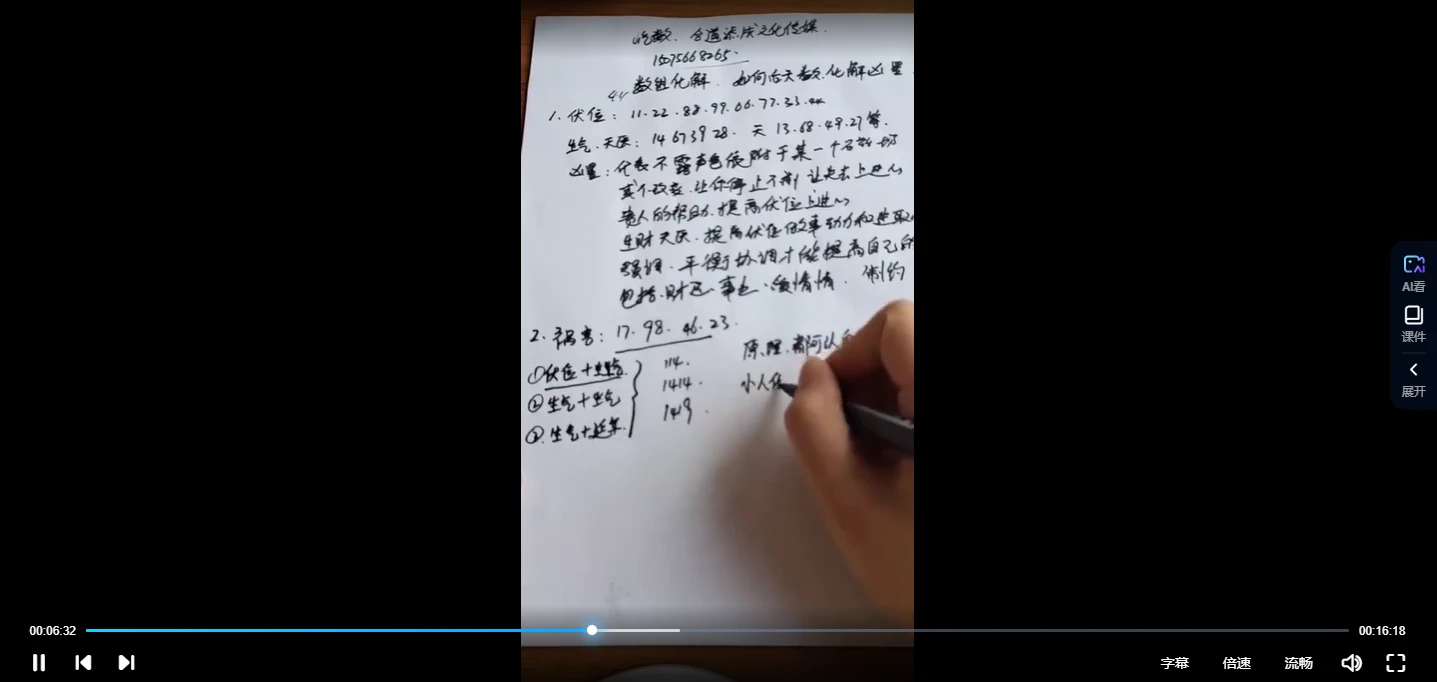 数. 合道 文化传媒.
15075668265.
44 数组化解. 如何 天 数. 化解凶星
1. 伏位: 11.22.88.99.66.77.33.44
生气. 天医: 14 67 39 28. 天 13.68.49.27等.
凶星: 代表不露声色 附于某一个
改变. 让你停止不前 让 上进心
贵人的帮助. 提高伏位上进心
生财天医. 提高伏位做事动力和进取
强调. 平衡协调才能提高自己的
包括. 财运. 事业. 爱情情. 制约
2. 祸害: 17. 98. 46. 23.
原理. 都可以
①伏位+生气. 114.
小人
②生气+生气 1414.
③. 生气+延年. 149.
AI看
课件
展开
00:06:32
00:16:18
字幕 倍速 流畅